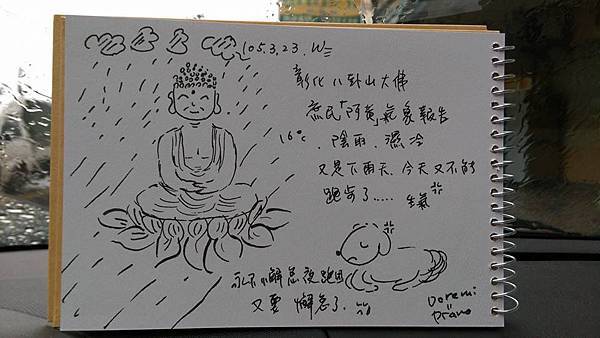 105.3.23. W三
彰化八卦山大佛
庶民「阿黃」氣象報告
16°C、陰雨、濕冷
又是下雨天、今天又不能
跑步了..... 生氣
永不懈怠夜跑団
又要 懈怠了.
Doremi
piano